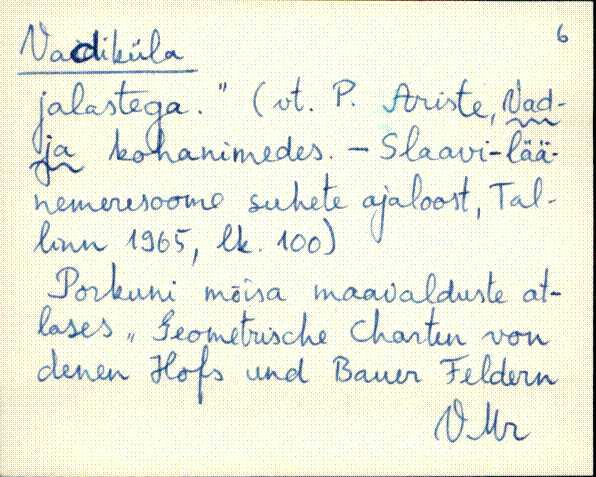 Vadiküla
6
jalastega." (vt. P. Ariste, Vad-
ja kohanimedes. - Slaavi-lää-
nemeresoome suhete ajaloost, Tal-
linn 1965, lk. 100)
Porkuni mõisa maavalduste at-
lases „Geometrische Charten von
denen Hofs und Bauer Feldern
VMr